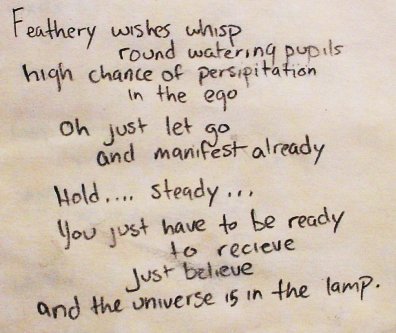 Feathery wishes whisp
round watering pupils
high chance of persipitation
in the ego
Oh just let go
and manifest already
Hold.... Steady...
You just have to be ready
to recieve
Just believe
and the universe is in the lamp.